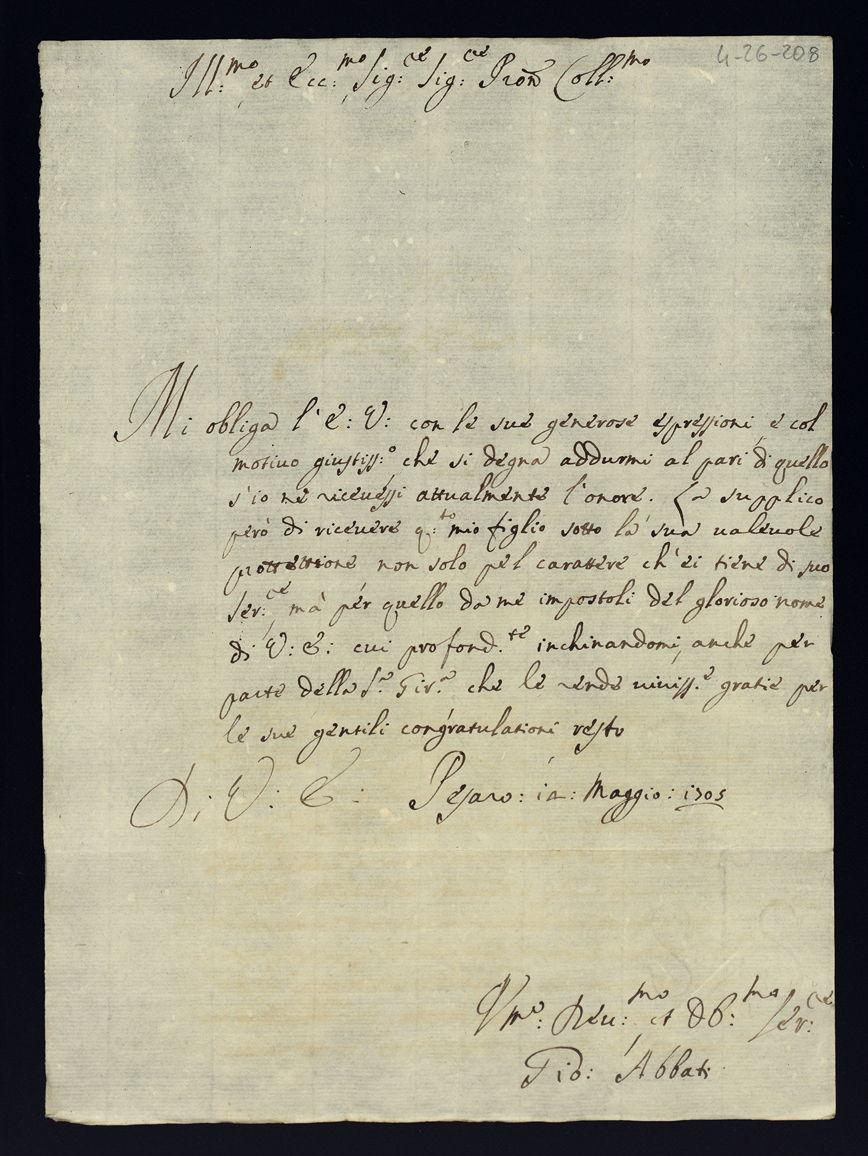 4-26-208
Ill:mo et Ecc:mo Sig:re Sig:re Pron Coll:mo
Mi obliga l'E: V: con le sue generose espressioni, e col
motiuo giustiss:o che si degna addurmi al pari di quello
s'io ne riceuessi attualmente l'onore. La supplico
però di riceuere q:to mio figlio sotto la sua ualeuole
protettione non solo pel carattere ch'ei tiene di suo
Ser:re mà per quello da me impostoli del glorioso nome
di V: E: cui profond.te inchinandomi, anche per
parte della S.a Gir.a che le rende uiuiss.e gratie per
le sue gentili congratulationi resto
Di V: E: Pesaro: 12: Maggio: 1705
Vmo: Deu:mo et Ob:mo Ser:re
Gio: Abbati